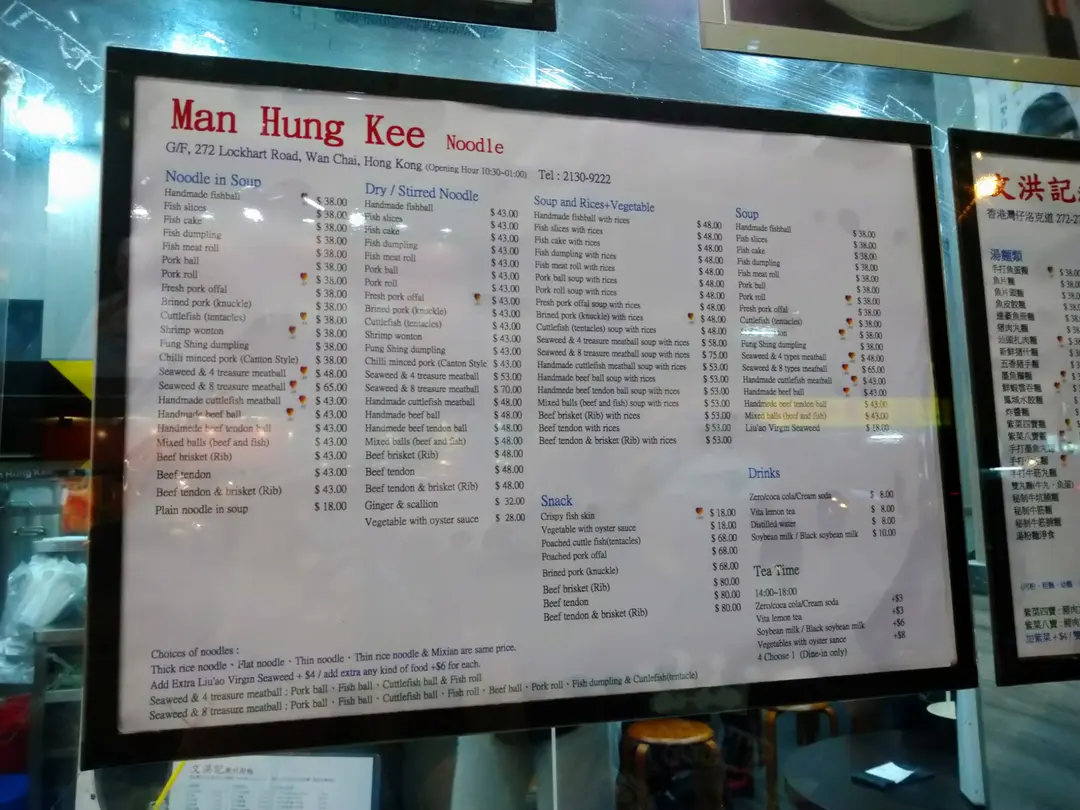 Man Hung Kee Noodle
G/F, 272 Lockhart Road, Wan Chai, Hong Kong (Opening Hour 10:30-01:00) Tel : 2130-9222
Noodle in Soup
Handmade fishball $ 38.00
Fish slices $ 38.00
Fish cake $ 38.00
Fish dumpling $ 38.00
Fish meat roll $ 38.00
Pork ball $ 38.00
Pork roll $ 38.00
Fresh pork offal $ 38.00
Brined pork (knuckle) $ 38.00
Cuttlefish (tentacles) $ 38.00
Shrimp wonton $ 38.00
Fung Shing dumpling $ 38.00
Chilli minced pork (Canton Style) $ 38.00
Seaweed & 4 treasure meatball $ 48.00
Seaweed & 8 treasure meatball $ 65.00
Handmade cuttlefish meatball $ 43.00
Handmade beef ball $ 43.00
Handmede beef tendon ball $ 43.00
Mixed balls (beef and fish) $ 43.00
Beef brisket (Rib) $ 43.00
Beef tendon $ 43.00
Beef tendon & brisket (Rib) $ 43.00
Plain noodle in soup $ 18.00
Dry / Stirred Noodle
Handmade fishball $ 43.00
Fish slices $ 43.00
Fish cake $ 43.00
Fish dumpling $ 43.00
Fish meat roll $ 43.00
Pork ball $ 43.00
Pork roll $ 43.00
Fresh pork offal $ 43.00
Brined pork (knuckle) $ 43.00
Cuttlefish (tentacles) $ 43.00
Shrimp wonton $ 43.00
Fung Shing dumpling $ 43.00
Chilli minced pork (Canton Style $ 43.00
Seaweed & 4 treasure meatball $ 53.00
Seaweed & 8 treasure meatball $ 70.00
Handmade cuttlefish meatball $ 48.00
Handmade beef ball $ 48.00
Handmede beef tendon ball $ 48.00
Mixed balls (beef and fish) $ 48.00
Beef brisket (Rib) $ 48.00
Beef tendon $ 48.00
Beef tendon & brisket (Rib) $ 48.00
Ginger & scallion $ 32.00
Vegetable with oyster sauce $ 28.00
Soup and Rices+Vegetable
Handmade fishball with rices $ 48.00
Fish slices with rices $ 48.00
Fish cake with rices $ 48.00
Fish dumpling with rices $ 48.00
Fish meat roll with rices $ 48.00
Pork ball soup with rices $ 48.00
Pork roll soup with rices $ 48.00
Fresh pork offal soup with rices $ 48.00
Brined pork (knuckle) with rices $ 48.00
Cuttlefish (tentacles) soup with rices $ 48.00
Seaweed & 4 treasure meatball soup with rices $ 58.00
Seaweed & 8 treasure meatball soup with rices $ 75.00
Handmade cuttlefish meatball soup with rices $ 53.00
Handmade beef ball soup with rices $ 53.00
Handmade beef tendon ball soup with rices $ 53.00
Mixed balls (beef and fish) soup with rices $ 53.00
Beef brisket (Rib) with rices $ 53.00
Beef tendon with rices $ 53.00
Beef tendon & brisket (Rib) with rices $ 53.00
Snack
Crispy fish skin $ 18.00
Vegetable with oyster sauce $ 18.00
Poached cuttle fish(tentacles) $ 68.00
Poached pork offal $ 68.00
Brined pork (knuckle) $ 68.00
Beef brisket (Rib) $ 80.00
Beef tendon $ 80.00
Beef tendon & brisket (Rib) $ 80.00
Soup
Handmade fishball $ 38.00
Fish slices $ 38.00
Fish cake $ 38.00
Fish dumpling $ 38.00
Fish meat roll $ 38.00
Pork ball $ 38.00
Pork roll $ 38.00
Fresh pork offal $ 38.00
Cuttlefish (tentacles) $ 38.00
$ 38.00
Fung Shing dumpling $ 38.00
Seaweed & 4 types meatball $ 48.00
Seaweed & 8 types meatball $ 65.00
Handmade cuttlefish meatball $ 43.00
Handmade beef ball $ 43.00
Handmade beef tendon ball $ 43.00
Mixed balls (beef and fish) $ 43.00
Liu'ao Virgin Seaweed $ 18.00
Drinks
Zero/coca cola/Cream soda $ 8.00
Vita lemon tea $ 8.00
Distilled water $ 8.00
Soybean milk / Black soybean milk $ 10.00
Tea Time
14:00~18:00
Zero/coca cola/Cream soda +$3
Vita lemon tea +$3
Soybean milk / Black soybean milk +$6
Vegetables with oyster sauce +$8
4 Choose 1 (Dine-in only)
Choices of noodles :
Thick rice noodle、Flat noodle、Thin noodle、Thin rice noodle & Mixian are same price.
Add Extra Liu'ao Virgin Seaweed + $4 / add extra any kind of food +$6 for each.
Seaweed & 4 treasure meatball : Pork ball、Fish ball、Cuttlefish ball & Fish roll
Seaweed & 8 treasure meatball : Pork ball、Fish ball、Cuttlefish ball、Fish roll、Beef ball、Pork roll、Fish dumpling & Cuttlefish(tentacle)
文洪記
香港灣仔洛克道 272-2
湯麵類
手打魚蛋麵
魚片麵
魚片頭麵
魚皮餃麵
豬肉丸麵
新鮮豬什麵
五香豬手麵
鮮蝦雲吞麵
鳳城水餃麵
炸醬麵
紫菜四寶麵
紫菜八寶麵
手打牛筋丸麵
秘制牛坑腩麵
秘制牛筋麵
秘制牛筋腩麵
湯粉麵淨食
紫菜四寶 :
紫菜八寶 :
加紫菜 + $4 /
文洪記